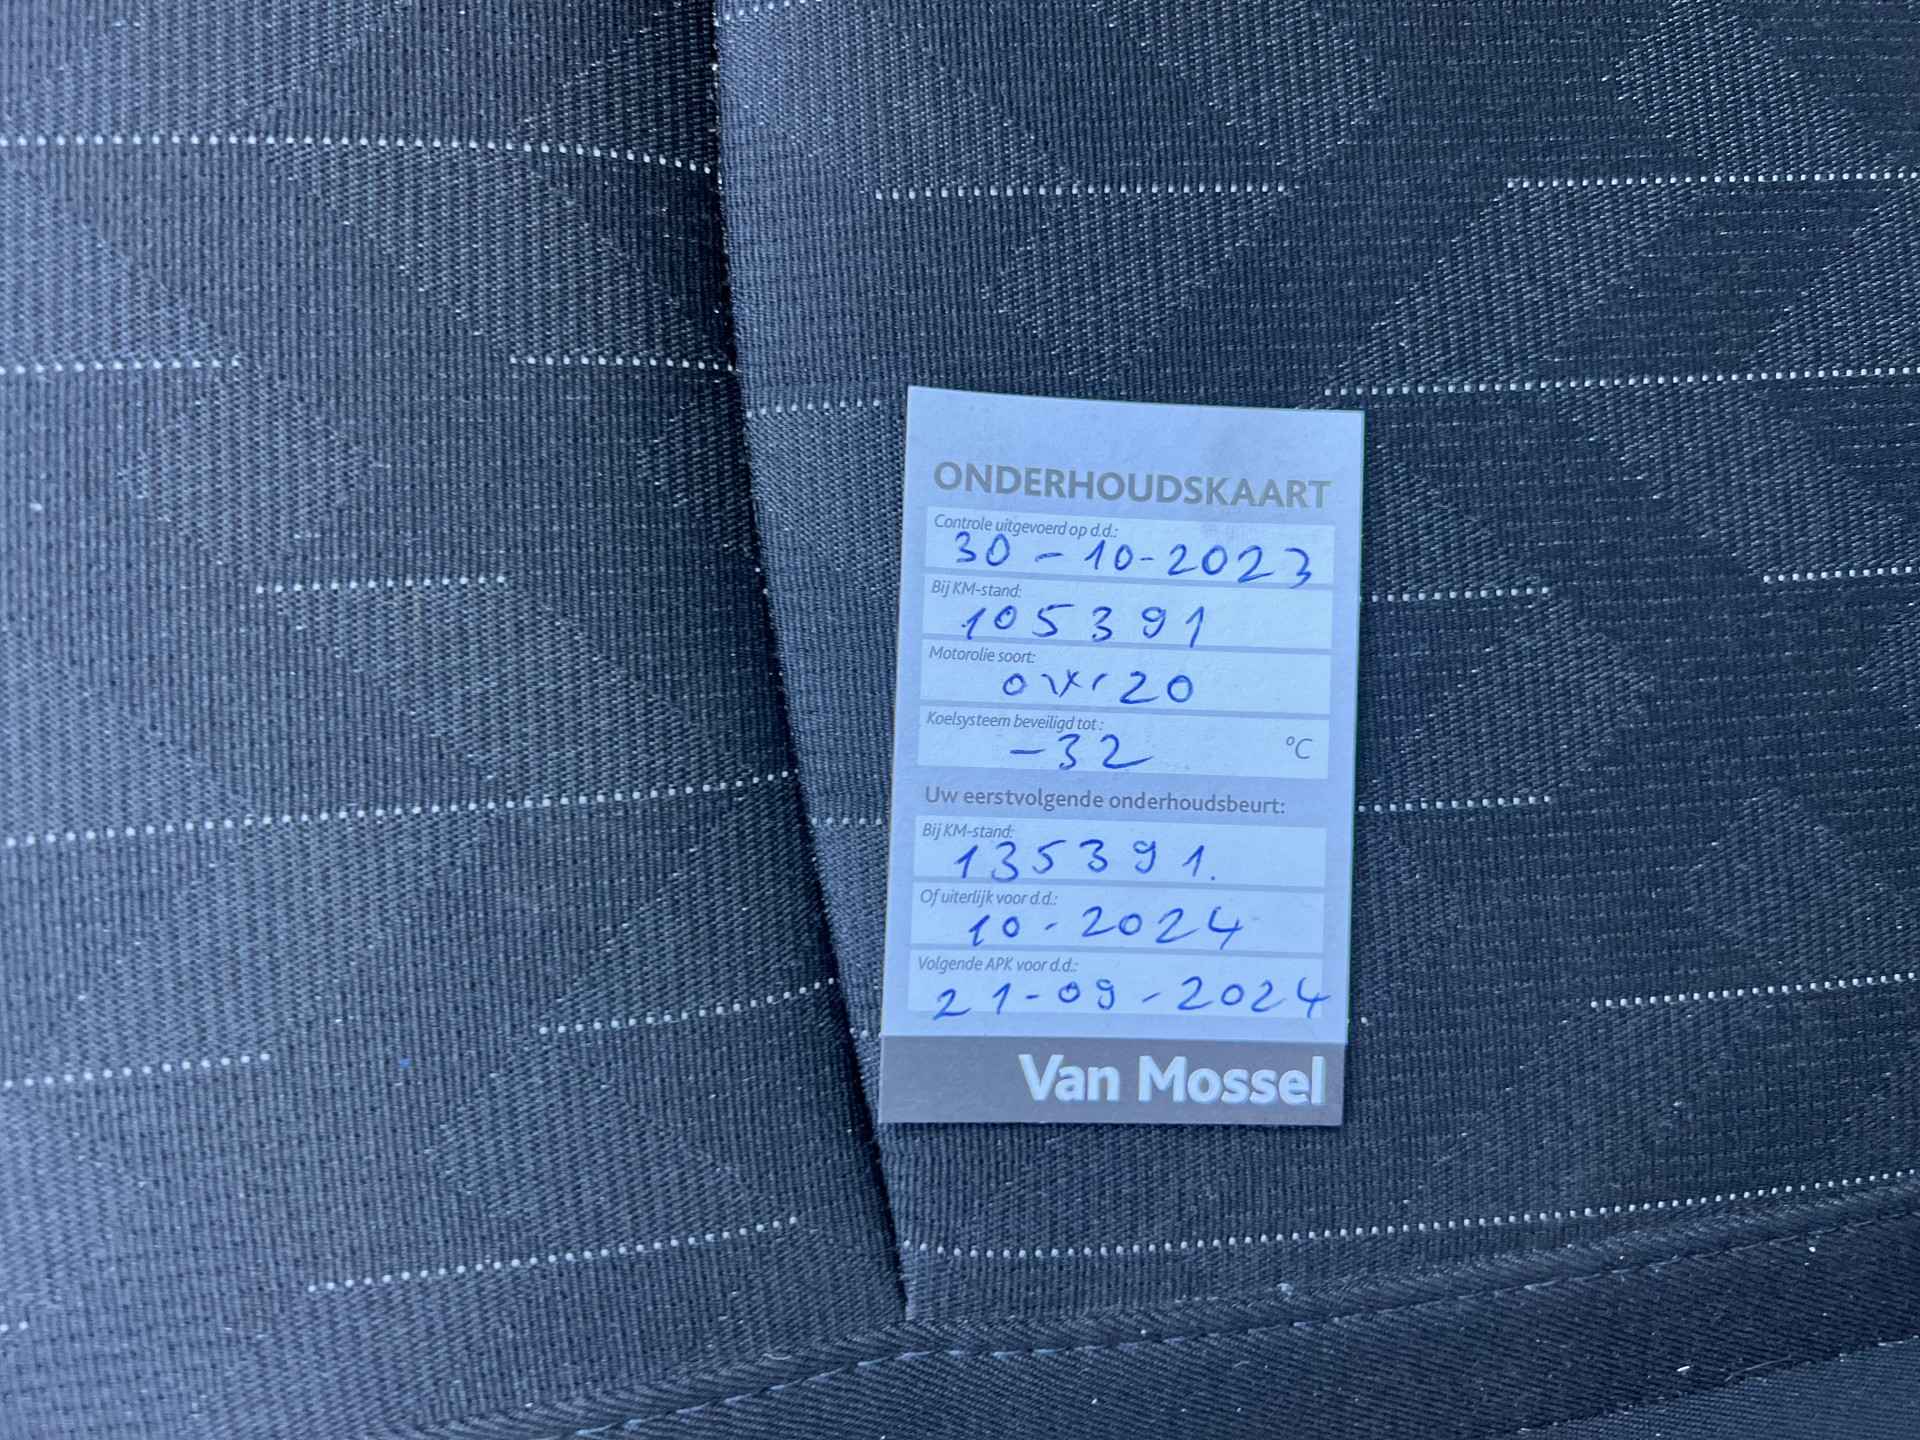 ONDERHOUDSKAART
Controle uitgevoerd op d.d.:
30-10-2023
Bij KM-stand:
105391
Motorolie soort:
20
Koelsysteem beveiligd tot :
-32 °C
Uw eerstvolgende onderhoudsbeurt:
Bij KM-stand:
135391.
Of uiterlijk voor d.d.:
10-2024
Volgende APK voor d.d.:
21-09-2024
Van Mossel